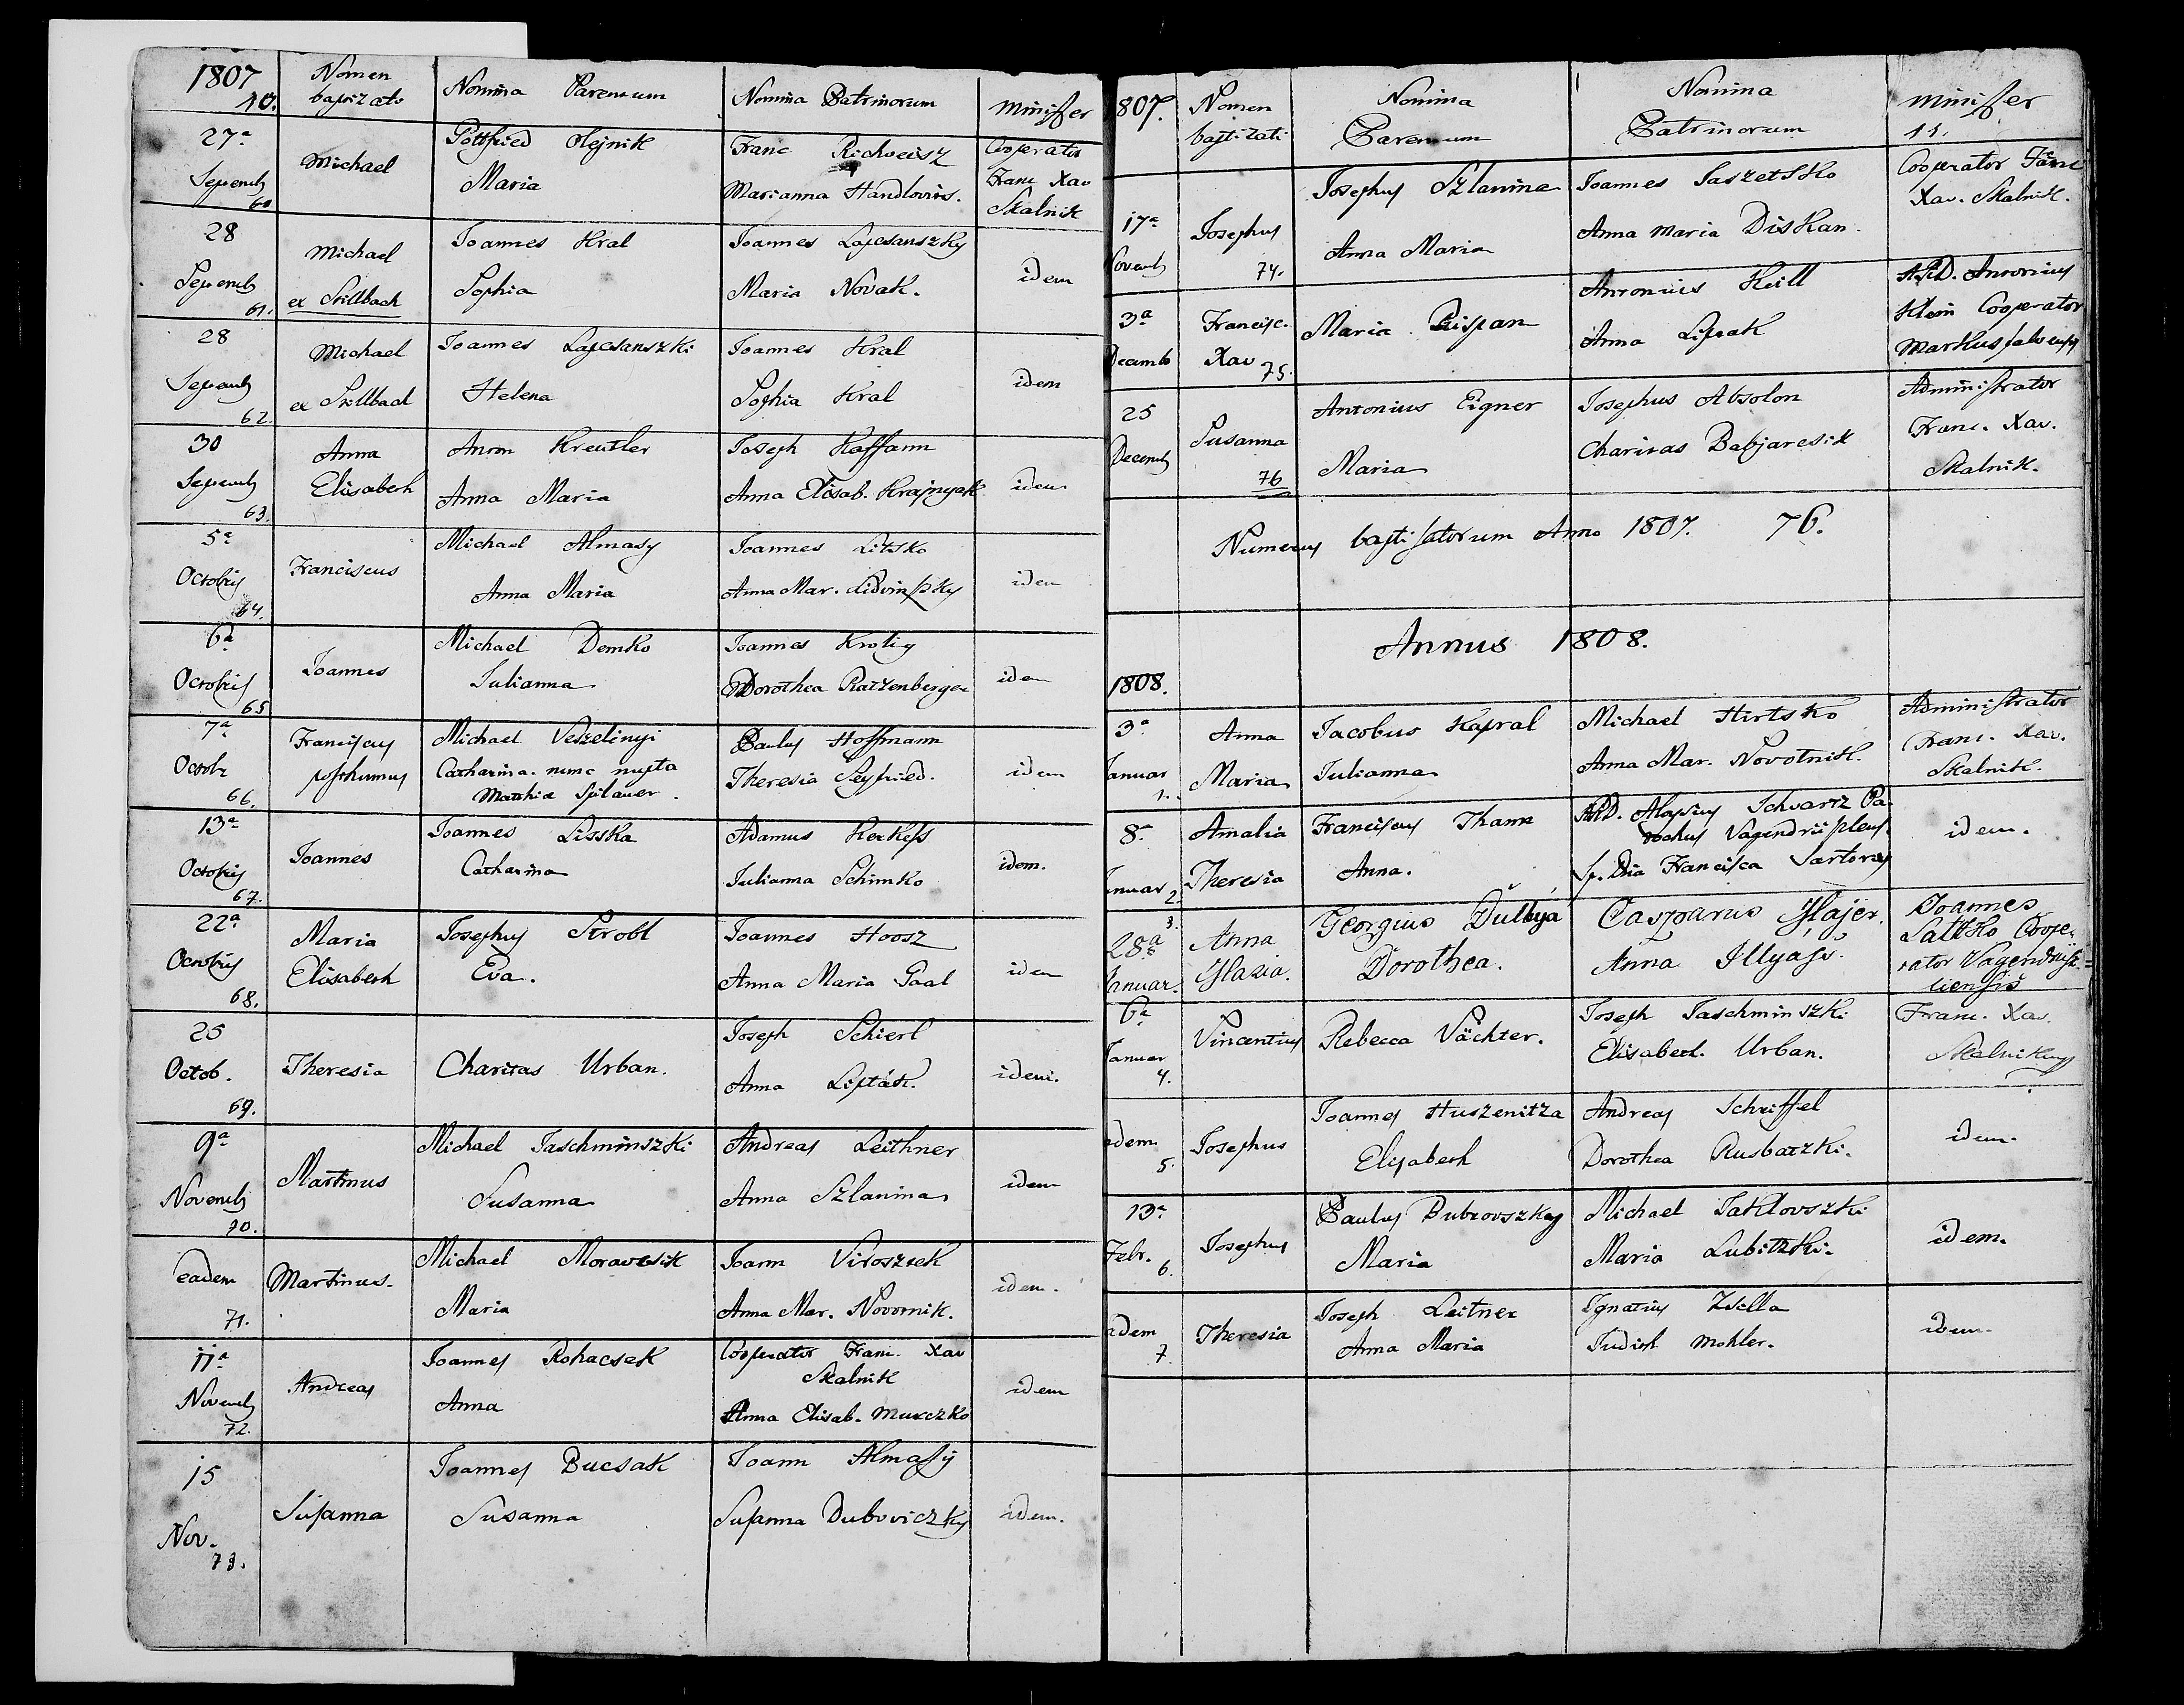 1807
10.
Nomen
baptizato
Nomina Parentum
Nomina Patrinorum
Minister
27a
Septemb
60
Michael
Gottfried Olejnik
Maria
Franc Richweisz
Marianna Handlovits.
Cooperator
Franc Xav
Skalnik
28
Septemb
61.
Michael
ex Stillbach
Joannes Kral
Sophia
Joannes Lapcsanszky
Maria Novak.
idem
28
Septemb
62.
Michael
ex Stillbach
Joannes Lapcsanszki
Helena
Joannes Kral
Sophia Kral
idem
30
Septemb
63.
Anna
Elisabeth
Anton Kreutler
Anna Maria
Joseph Haffann
Anna Elisab. Krajnyak
idem
5a
Octobris
64.
Franciscus
Michael Almasy
Anna Maria
Joannes Litsko
Anna Mar.
idem
6a
Octobris
65
Joannes
Michael Demko
Julianna
Joannes Krotig
Dorothea Ratzenberger
idem
7a
Octobr
66.
Franciscus
posthumus
Michael Veszelinyi
Catharina. nunc nupta
Matthiæ Spilauer.
Paulus Hoffmann
Theresia Seyfried.
idem
13a
Octobris
67.
Joannes
Joannes Lisska
Catharina
Adamus Kerkess
Julianna Schimko
idem.
22a
Octobris
68.
Maria
Elisabeth
Josephus Strobl
Eva.
Joannes Hoosz
Anna Maria Gaal
idem
25
Octob.
69.
Theresia
Charitas Urban.
Joseph Schierl
Anna Lipták.
idem.
9a
Novemb
70.
Martinus
Michael Jaschminszki
Susanna
Andreas Leithner
Anna Szlanina
idem
eadem
71.
Martinus.
Michael Moravcsik
Maria
Joann Viroszsek
Anna Mar. Novotnik.
idem.
11a
Novemb
72.
Andreas
Joannes Rohacsek
Anna
Cooperator Franc. Xav
Skalnik
Anna Elisab. Murczko
idem
15
Nov.
73.
Susanna
Joannes Bucsak
Susanna
Joann Almassy
Susanna Duboviczky
idem.
807.
Nomen
baptizati
Nomina
Parentum
Nomina
Patrinorum
Minister
11.
17a
Novemb
Josephus
74.
Josephus Szlanina
Anna Maria
Joannes Saszetsko
Anna Maria Diskan.
Cooperator Franc
Xav. Skalnik.
3a
Decemb
Francisc.
Xav
75.
Maria Prispan
Antonius Keill
Anna Liptak
A.R.D. Antonius
Klein Cooperator
Markusfalvensis
25
Decemb
Susanna
76
Antonius Eigner
Maria
Josephus Absolon
Charitas Babjarcsik
Administrator
Franc. Xav.
Skalnik.
Numerus baptisatorum Anno 1807. 76.
Annus 1808.
1808.
3a
Januar
1.
Anna
Maria
Jacobus Kapral
Julianna
Michael Hirtsko
Anna Mar. Novotnik.
Administrator
Franc. Xav.
Skalnik.
8a
Januar
2.
Amalia
Theresia
Franciscus Thann
Anna.
A.R.D. Aloysius Schvartz Pa-
rochus
Francisca Sartory
idem.
3.
28a
Januar.
Anna
Glasia.
Georgius Dullya
Dorothea.
Casparus Glajer.
Anna Illyáss.
Joannes
Lattko Coope-
rator Vagendrisz=
liensis
6a
Januar
4.
Vincentius
Rebecca Vächter.
Joseph Jaschminszki
Elisabeth. Urban.
Franc. Xav.
Skalnik
adem
5.
Josephus
Joannes Huszenitza
Elisabeth
Andreas Schriffel
Dorothea Rusbatzki.
idem.
13a
Febr.
6.
Josephus
Paulus Dubrovszky
Maria
Michael Jaklovszki
Maria Lubitzki.
idem.
adem
7.
Theresia
Joseph Leitner
Anna Maria
Ignatius Zsilla
Judith Mohler.
idem.